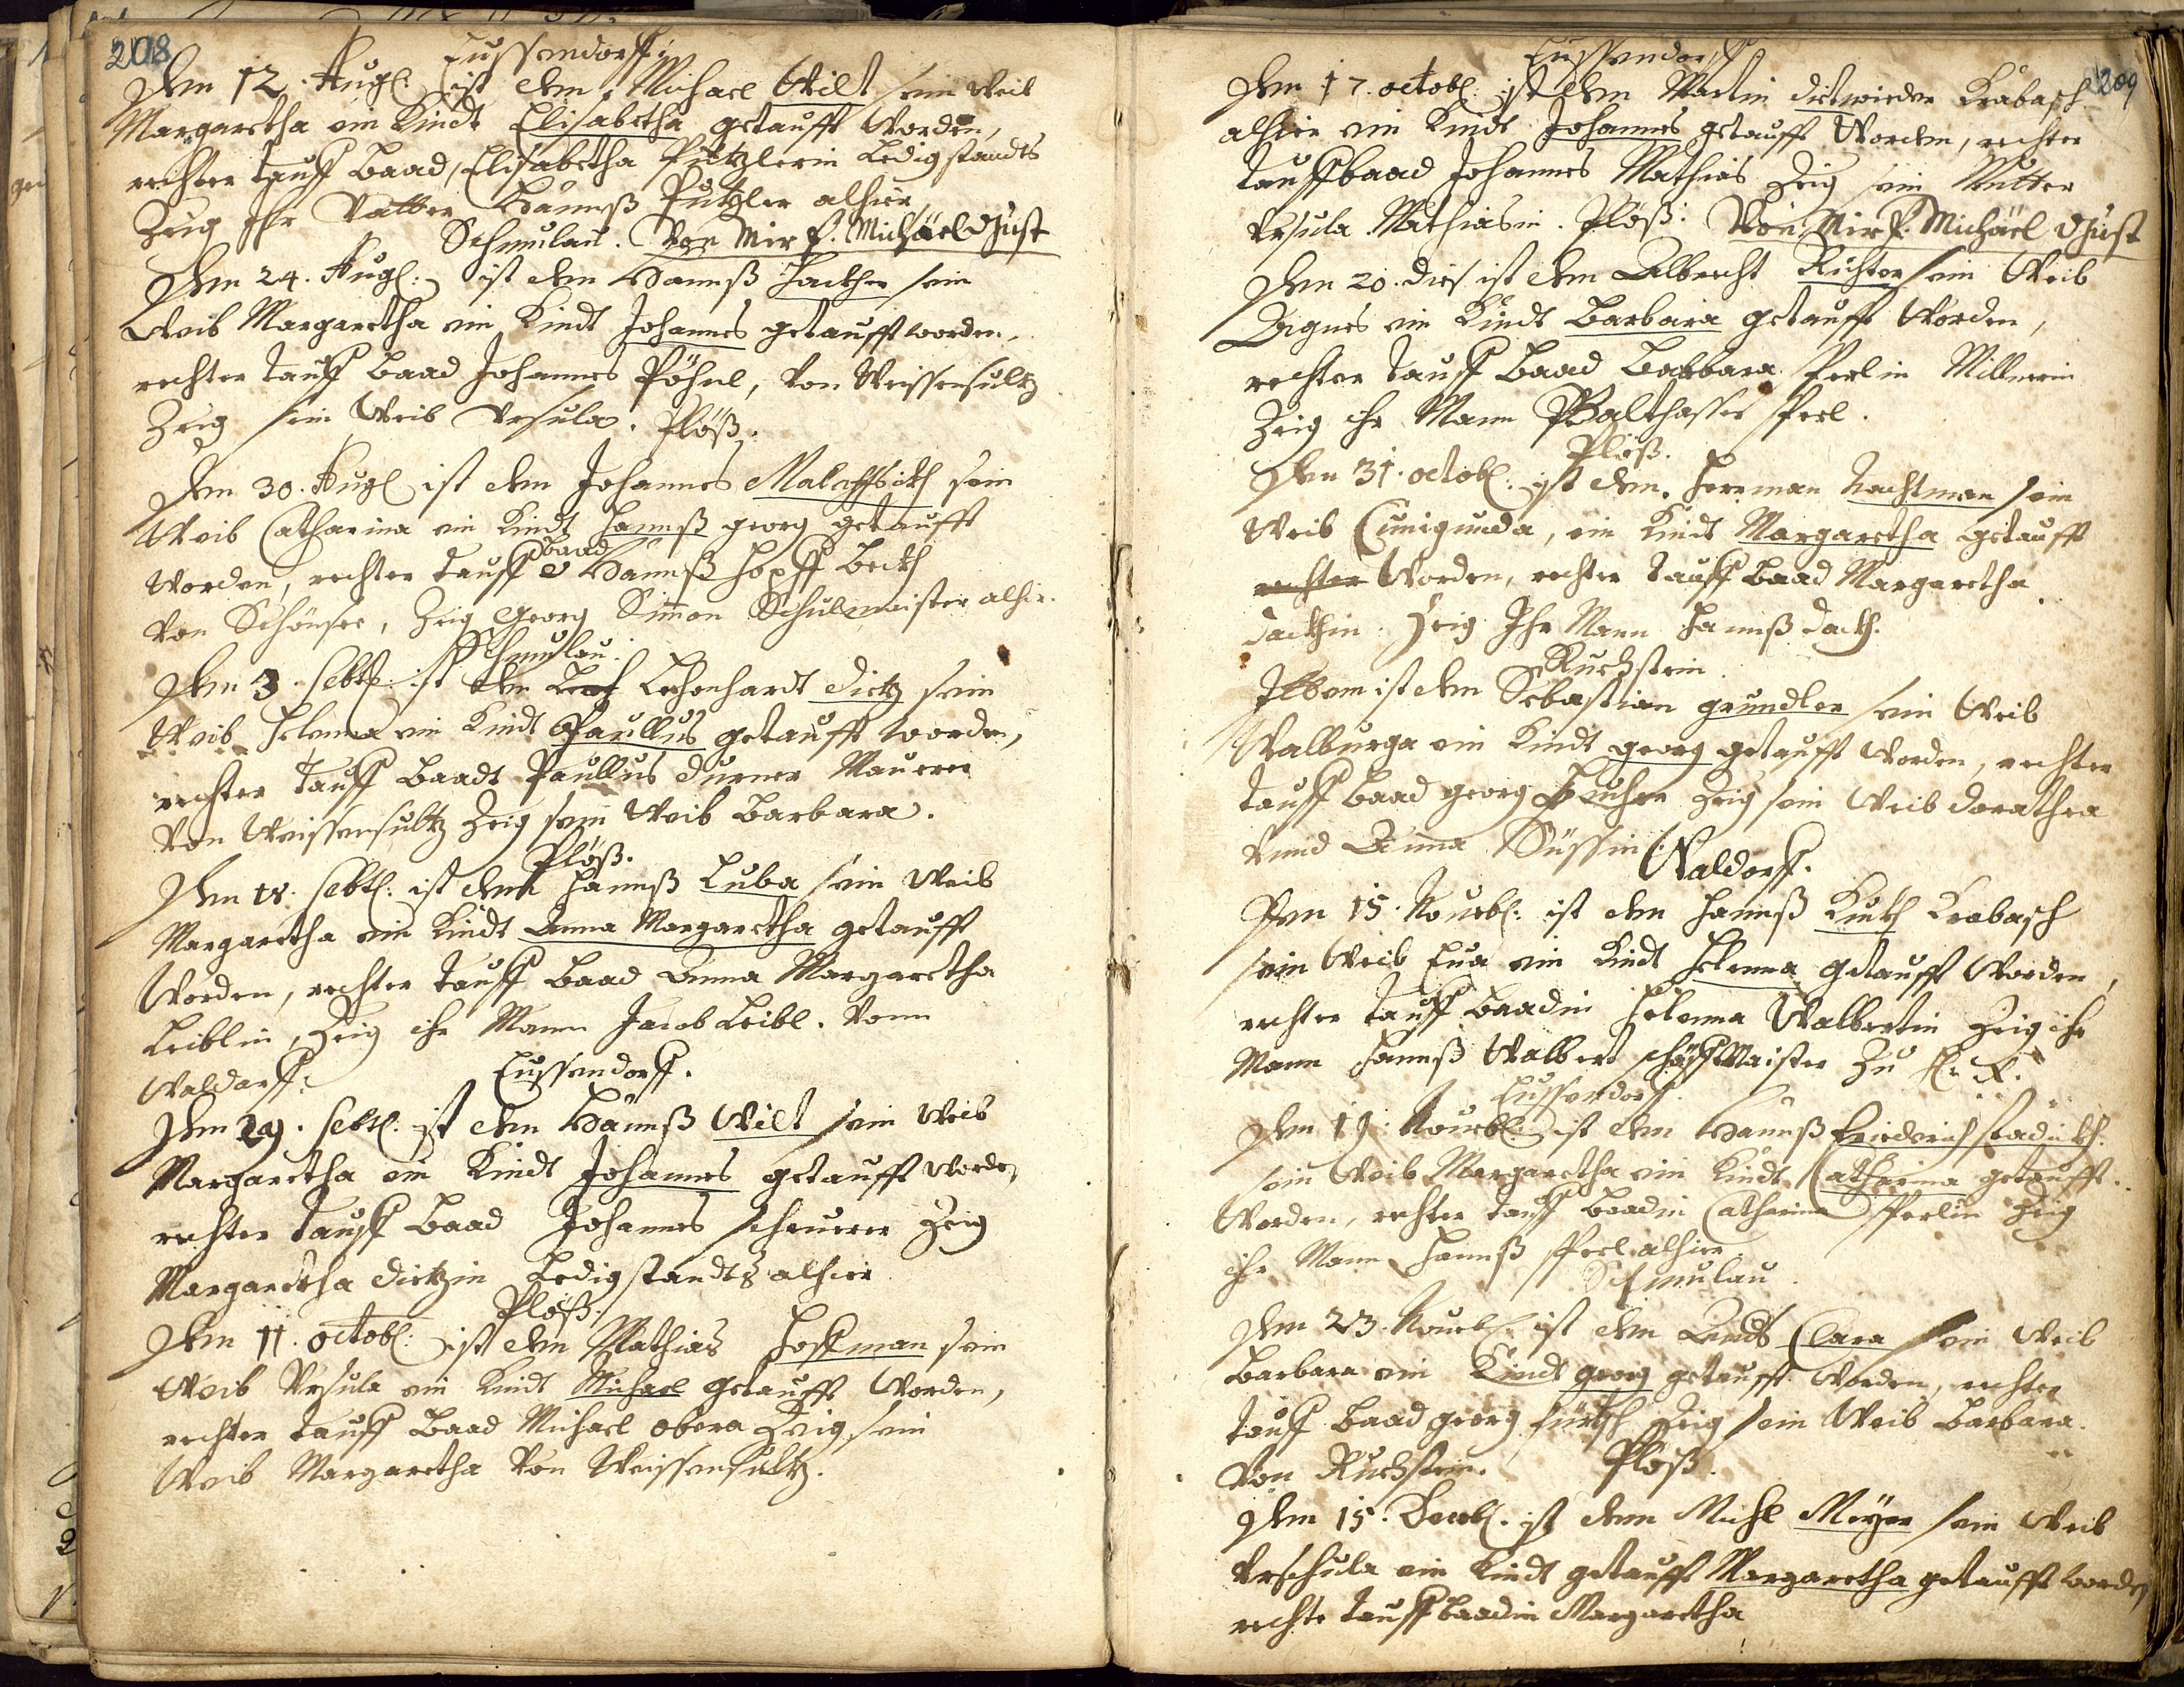 208
Eussendorff:
Den 12. Augl: ist dem Michael Wilt sein Weib
Margaretha ein Kindt Elisabetha getaufft Worden,
rechter tauff Baad, Elisabetha Putzlerin Ledigstandts
Zeug Ihr Vatter Hannß Putzler alhier
Schmulau. Von Mir P. Michäel Just
Den 24. Augl: ist dem Hannß Hackher sein
Weib Margaretha ein Kindt Johannes getaufft worden,
rechter tauff Baad Johannes Pöhnl, Von Weissensultz
Zeig sein Weib Vrsula. Plöß.
Den 30. Augl ist dem Johannes sein
Weib Catharina ein Kindt Hannß georg getaufft
Worden, rechter tauff baad Hannß Hopff Beckh
Von Schönsee, Zeig Georg Simon Schulmeister alhir.
Schmulau.
Den 3. Sebtl: ist dem Lehenhardt Dietz sein
Weib Helenna ein Kindt Paullus getaufft worden,
rechter tauff Baadt Paullus Durner Maurer
Von Weissensultz Zeig sein Weib Barbara.
Plöß.
Den 18. Sebtl: ist dem Hannß Luba sein Weib
Margaretha ein Kindt Anna Margaretha getaufft
Worden, rechter tauff Baad Anna Margaretha
Leiblin, Zeig ihr Mann Jacob Leibl. Vonn
Waldorff: Eussendorff.
Den 29. Sebtl: ist dem Hannß Wilt sein Weib
Margaretha ein Kindt Johannes getaufft Worden
rechter tauff Baad Johannes Scheurer Zeig
Margaretha Dietzin Ledigstandts alhier
Plöß.
Den 11. octobl: ist dem Mathias Hoffman sein
Weib Vrsula ein Kindt Michael getaufft Worden,
rechter tauff Baad Michael obera Zeig sein
Weib Margaretha Von Weissensultz.
209
Eussendorff
Den 17. octobl: ist dem Martin dietwieder Krabasch
alhier ein Kindt Johannes getaufft Worden, rechter
tauffbaad Johannes Mathias Zeig sein Mutter
Vrsula Mathiasin. Plöß: Von Mir P. Michäel Just
Den 20. dies ist dem Albrecht Richter sein Weib
Agnes ein Kindt Barbara getaufft Worden,
rechter tauff Baad Barbara Perlin Millnerin
Zeig ihr Mann Balthasser Perl.
Plöß.
Den 31. octobl: ist dem Herrman Nachtman sein
Weib Cunigunda, ein Kindt Margaretha getaufft
rechter Worden, rechter tauff Baad Margaretha
Dackhin Zeig Ihr Mann Hannß Dackh.
Ruckstein
Ibem ist dem Sebastian grundler sein Weib
Walburga ein Kindt georg getaufft Worden, rechter
tauff Baad georg Zeig sein Weib dorathea
Vnnd Anna Süssin. Waldorff.
Den 15. Nouebl: ist dem Hannß Krabasch
sein Weib Eua ein Kindt Helenna getaufft Worden,
rechter tauff Baadin Helenna Walbertin Zeig ihr
Mann Hannß Walbert schaffMaister Zu
Eussendorff.
Den Nouebl: ist dem Hannß Friederich
sein Weib Margaretha ein Kindt Catharina getaufft.
Worden, rechter tauff Baadin Catharina Perlin Zeig
ihr Mann Hannß Perl alhier.
Schmulau.
Den 23. Nouebl: ist dem Clara sein Weib
Barbara ein Kindt georg getaufft Worden, rechter
tauff Baad georg Zeig sein Weib Barbara.
Von Ruckstein. Plöß.
Den 15. Decebl: ist dem Michl Meyer sein Weib
Vrschula ein Kindt getaufft Margaretha getaufft worden
rechte tauff Baadin Margaretha